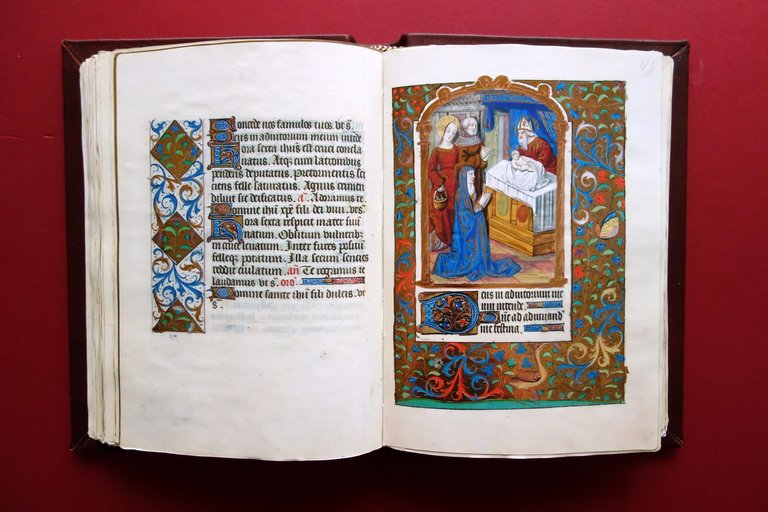 Concede nos famulos tuos. vt s̄.
Deus in adiutorium meum intende
Hora sexta ihūs est cruci concla
uatus. Atqȝ cum latronibus
pendens deputatus. Pre tormentis si
ciens felle saturatus. Agnus crimen
diluit sic deificatus. a. Adoramus te
Domine ihū xp̄e fili dei viui. vt s̄
Hora sexta respicit mater suū
natum.
in cruce leuatum. Inter fures positū
felleqȝ potatum. Illa secum sencies
reddit eiulatum. an̄ Te rogamus te
laudamus vt s̄. oro
Domine sancte ihū fili dulcis. vt
s̄.
Deus in adiutorium me
um intende
Dn̄e ad adiuuand̄
me festina.